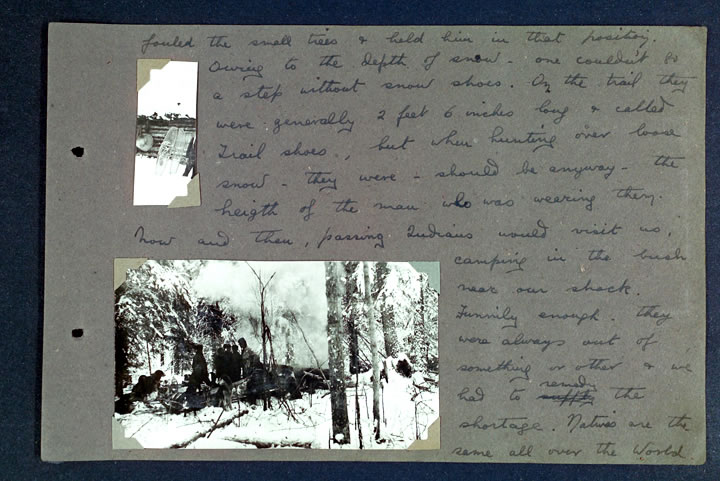 fouled the small trees & held him in that position.
Owing to the depth of snow - one couldn't go
a step without snow shoes. On the trail they
were generally 2 feet 6 inches long & called
Trail shoes., but when hunting over loose
snow - they were - should be anyway - the
heigth of the man who was wearing them.
Now and then, passing Indians would visit us,
camping in the bush
near our shack.
Funnily enough. they
were always out of
something or other & we
had to supply remedy the
shortage. Natives are the
same all over the World